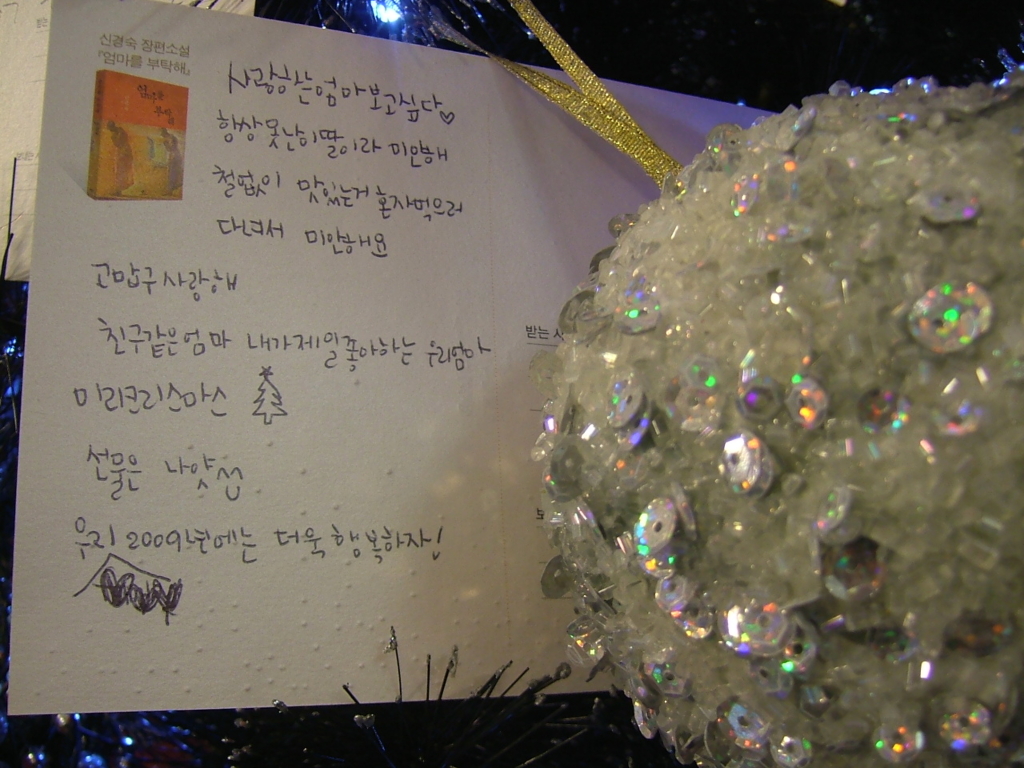 신경숙 장편소설
『엄마를 부탁해』
엄마를
부탁해
사랑하는엄마보고싶다♡
항상못난이딸이라 미안해
철없이 맛있는거 혼자먹으러
다녀서 미안해요
고맙구사랑해
친구같은엄마 내가제일좋아하는 우리엄마
미리크리스마스
선물은
우리 2009년에는 더욱 행복하자!
받는 사
보